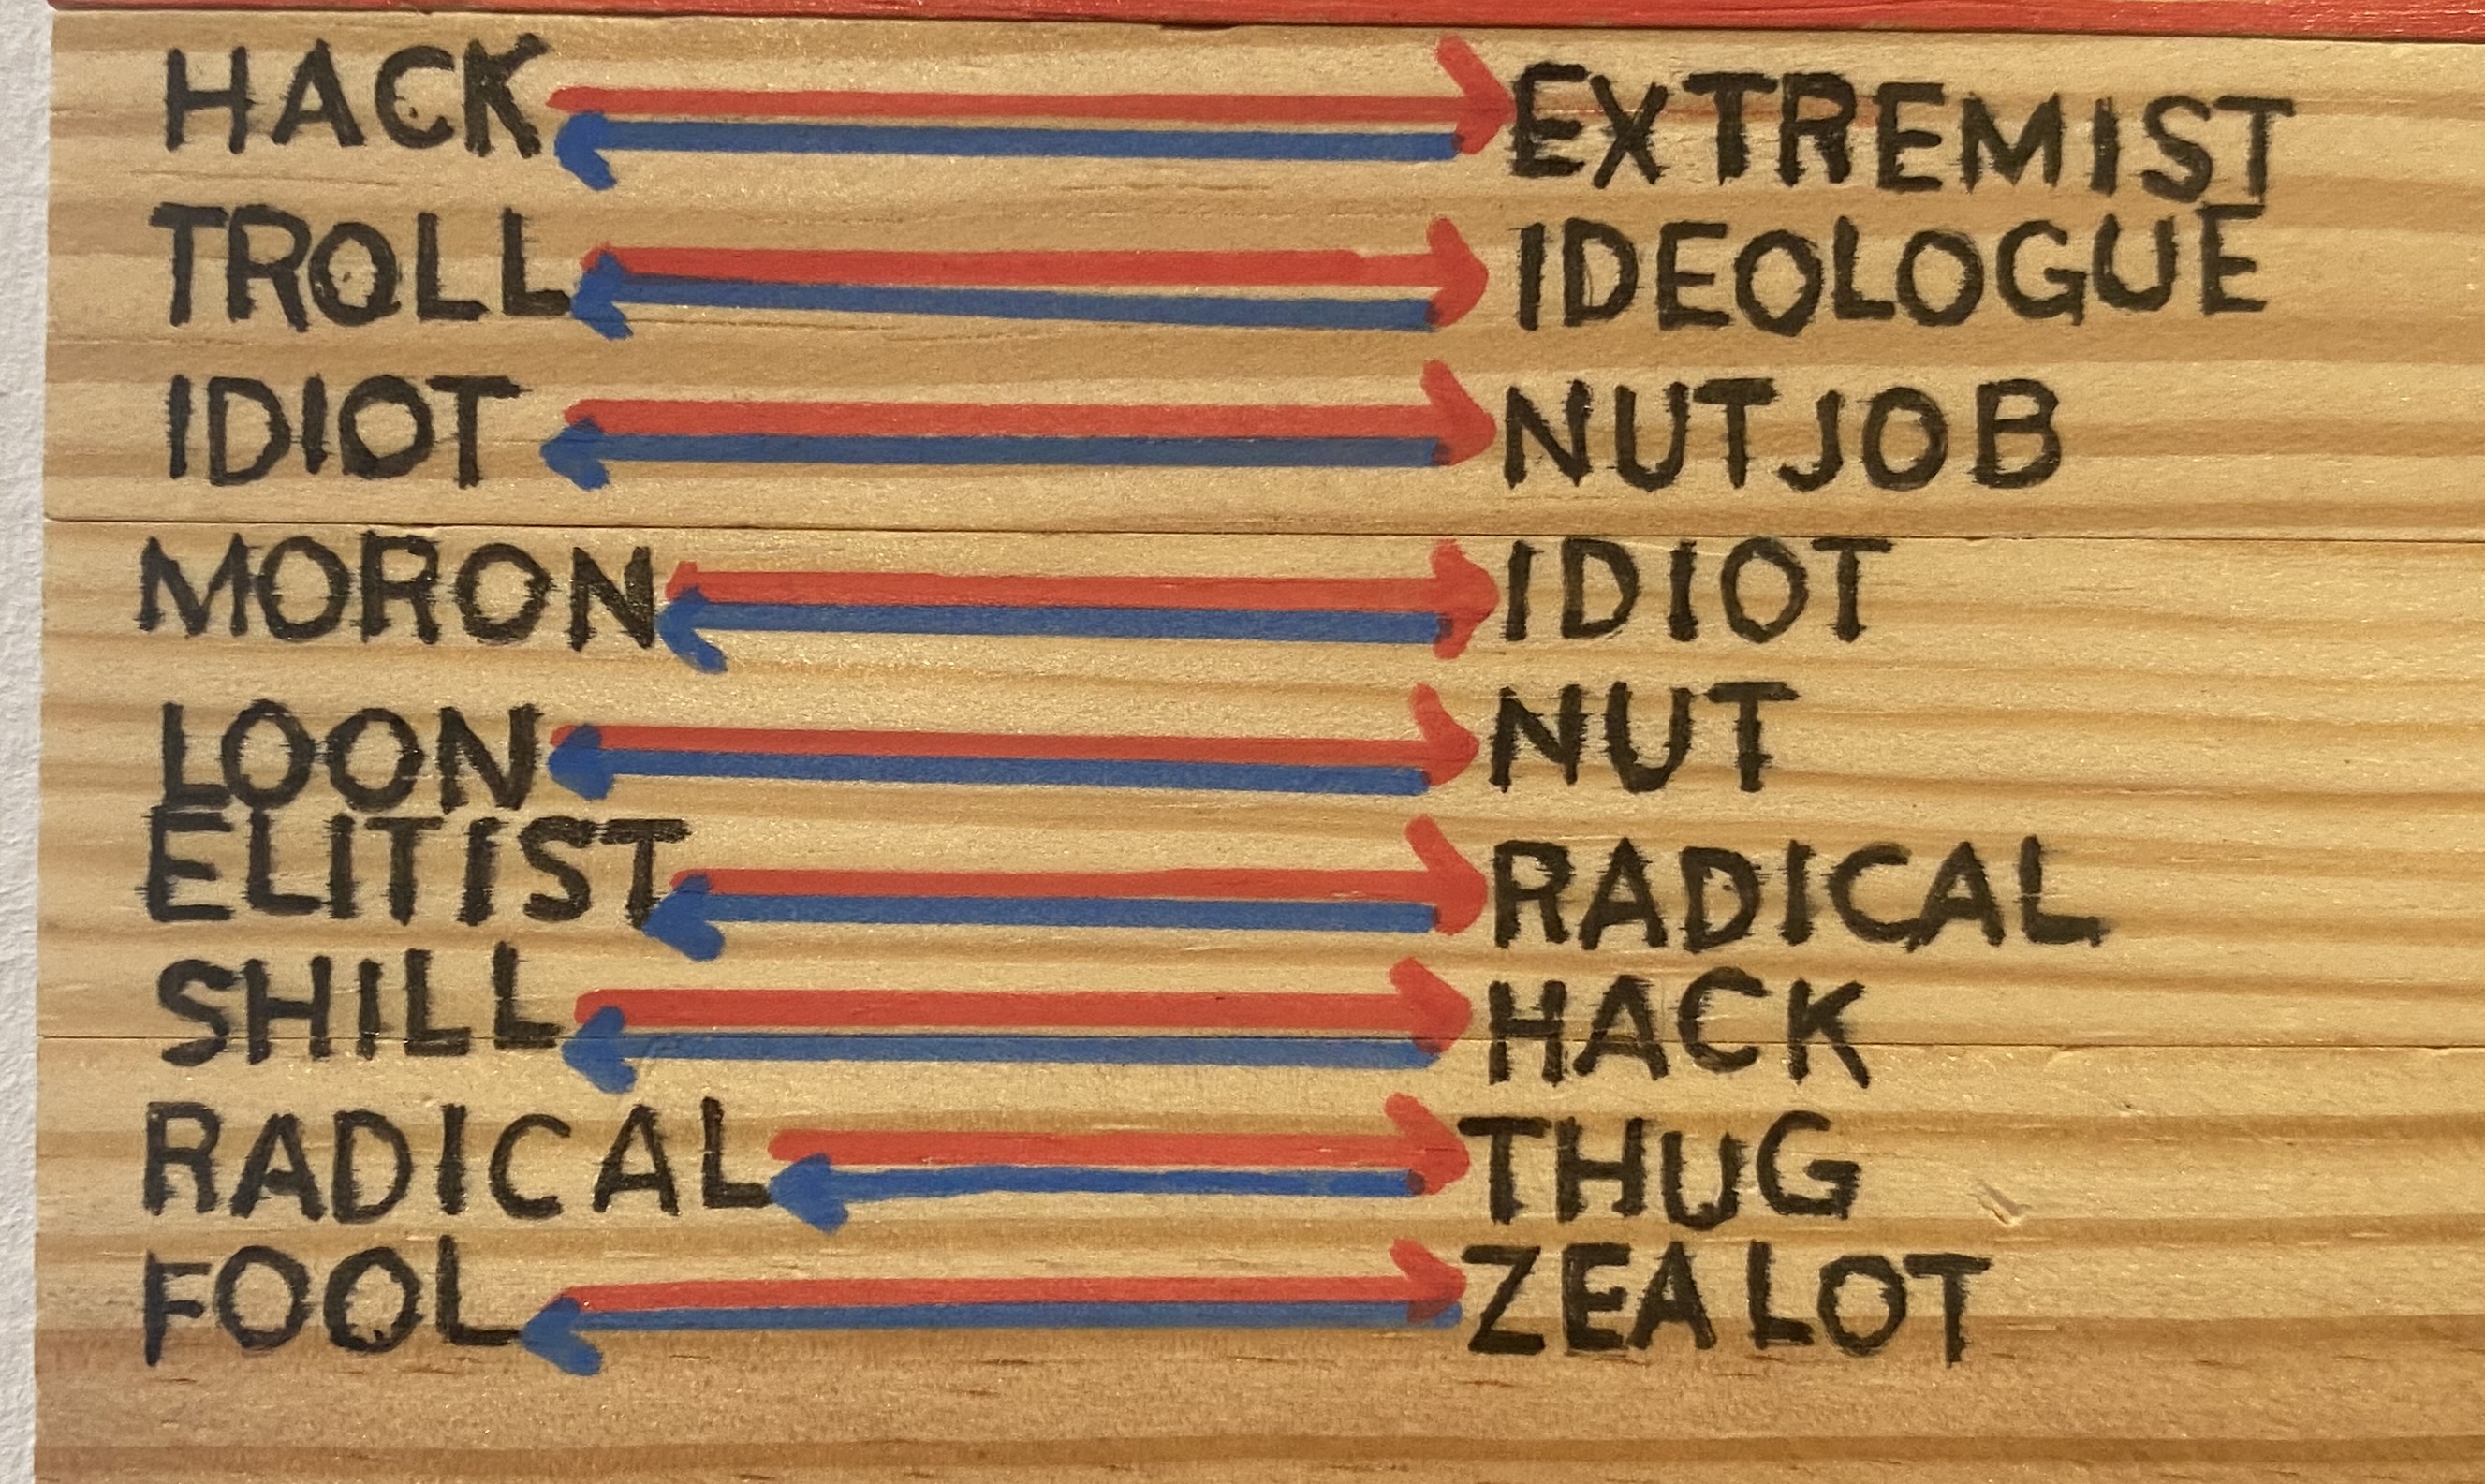 HACK EXTREMIST
TROLL IDEOLOGUE
IDIOT NUTJOB
MORON IDIOT
LOON NUT
ELITIST RADICAL
SHILL HACK
RADICAL THUG
FOOL ZEALOT